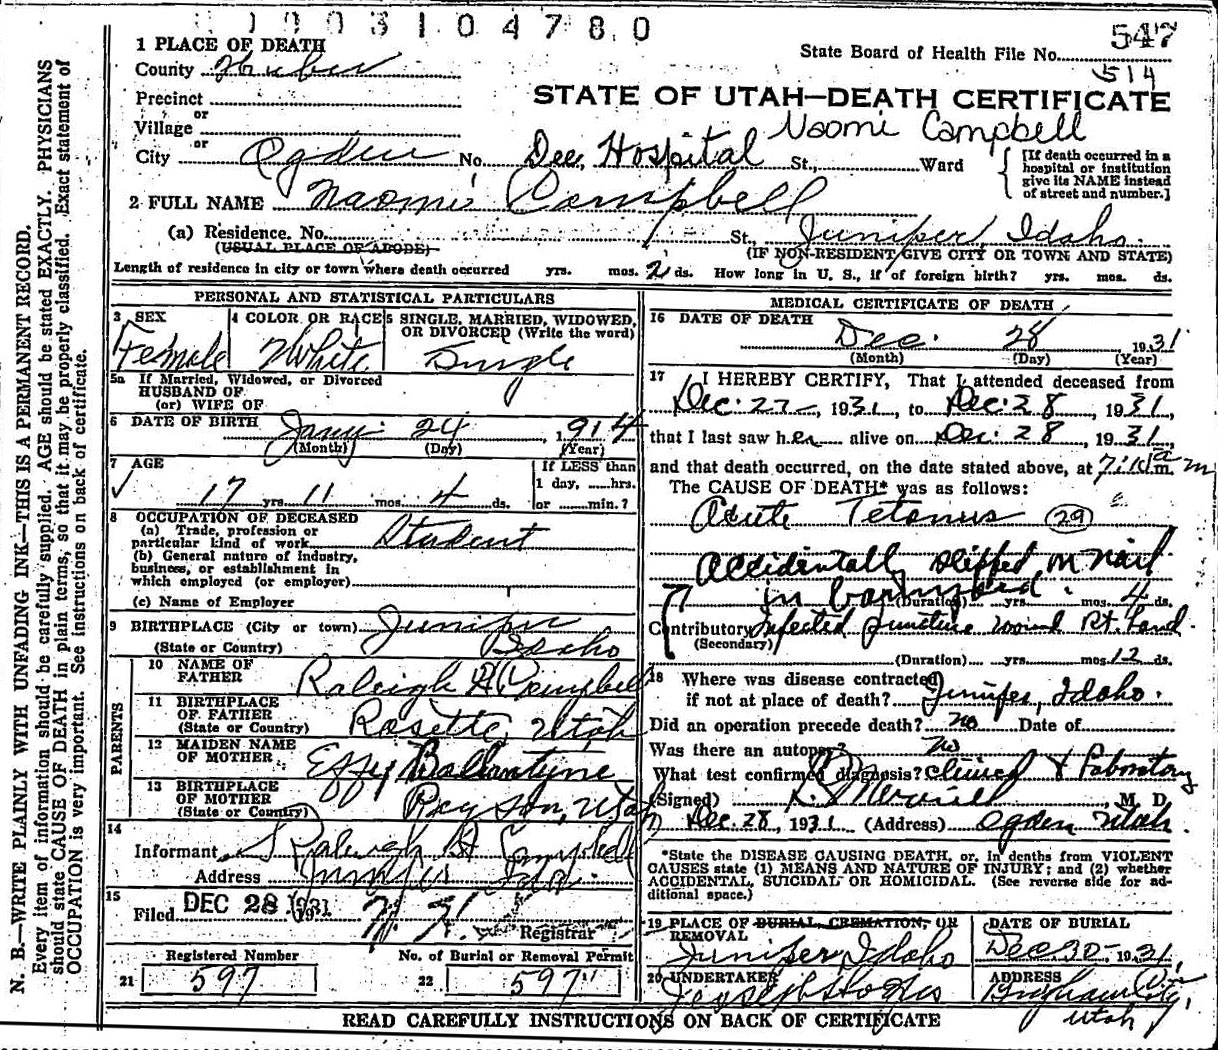 1003104780
547
1 PLACE OF DEATH
State Board of Health File No.
County Weber
514
Precinct
STATE OF UTAH—DEATH CERTIFICATE
or
Village
Naomi Campbell
or
City Ogden No. Dee Hospital St., Ward
[If death occurred in a
hospital or institution
give its NAME instead
of street and number.]
2 FULL NAME Naomi Campbell
(a) Residence. No. St., Juniper, Idaho.
(USUAL PLACE OF ABODE) (IF NON-RESIDENT GIVE CITY OR TOWN AND STATE)
Length of residence in city or town where death occurred yrs. mos. 2 ds. How long in U. S., if of foreign birth? yrs. mos. ds.
PERSONAL AND STATISTICAL PARTICULARS
3 SEX
Female
4 COLOR OR RACE
White
5 SINGLE, MARRIED, WIDOWED,
OR DIVORCED (Write the word)
Single
5a If Married, Widowed, or Divorced
HUSBAND OF
(or) WIFE OF
6 DATE OF BIRTH Jany. 24, 1914
(Month) (Day) (Year)
7 AGE
17 yrs. 11 mos. 4 ds.
If LESS than
1 day, hrs.
or min.?
8 OCCUPATION OF DECEASED
(a) Trade, profession or
particular kind of work Student
(b) General nature of industry,
business, or establishment in
which employed (or employer)
(c) Name of Employer
9 BIRTHPLACE (City or town) Juniper
(State or Country) Idaho
PARENTS
10 NAME OF
FATHER Raleigh H Campbell
11 BIRTHPLACE
OF FATHER
(State or Country) Rosette, Utah
12 MAIDEN NAME
OF MOTHER Effey Ballantyne
13 BIRTHPLACE
OF MOTHER
(State or Country) Payson, Utah
14
Informant Raleigh H Campbell
Address Juniper Ida.
15
Filed DEC 28 1931
Registrar
Registered Number
21 597
No. of Burial or Removal Permit
22 597
MEDICAL CERTIFICATE OF DEATH
16 DATE OF DEATH
Dec. 28 1931
(Month) (Day) (Year)
17 I HEREBY CERTIFY, That I attended deceased from
Dec. 27, 1931, to Dec. 28, 1931,
that I last saw her alive on Dec. 28, 1931,
and that death occurred, on the date stated above, at a m.
The CAUSE OF DEATH* was as follows:
Acute Tetanus 29
Accidentally slipped on nail
in barnyard.
(Duration) yrs. mos. 4 ds.
Contributory Infected puncture wound Rt. hand
(Secondary)
(Duration) yrs. mos. 12 ds.
18 Where was disease contracted
if not at place of death? Juniper, Idaho.
Did an operation precede death? no Date of
Was there an autopsy? no
What test confirmed diagnosis? Clinical & Laboratory
(Signed) Merrill, M. D.
Dec. 28, 1931 (Address) Ogden Utah.
*State the DISEASE CAUSING DEATH, or, in deaths from VIOLENT
CAUSES state (1) MEANS AND NATURE OF INJURY; and (2) whether
ACCIDENTAL, SUICIDAL OR HOMICIDAL. (See reverse side for ad-
ditional space.)
19 PLACE OF BURIAL, CREMATION, OR
REMOVAL
Juniper Idaho
DATE OF BURIAL
Dec. 30, 1931
20 UNDERTAKER
ADDRESS
Brigham City,
Utah
READ CAREFULLY INSTRUCTIONS ON BACK OF CERTIFICATE
N. B.—WRITE PLAINLY WITH UNFADING INK—THIS IS A PERMANENT RECORD.
Every item of information should be carefully supplied. AGE should be stated EXACTLY. PHYSICIANS
should state CAUSE OF DEATH in plain terms, so that it may be properly classified. Exact statement of
OCCUPATION is very important. See instructions on back of certificate.